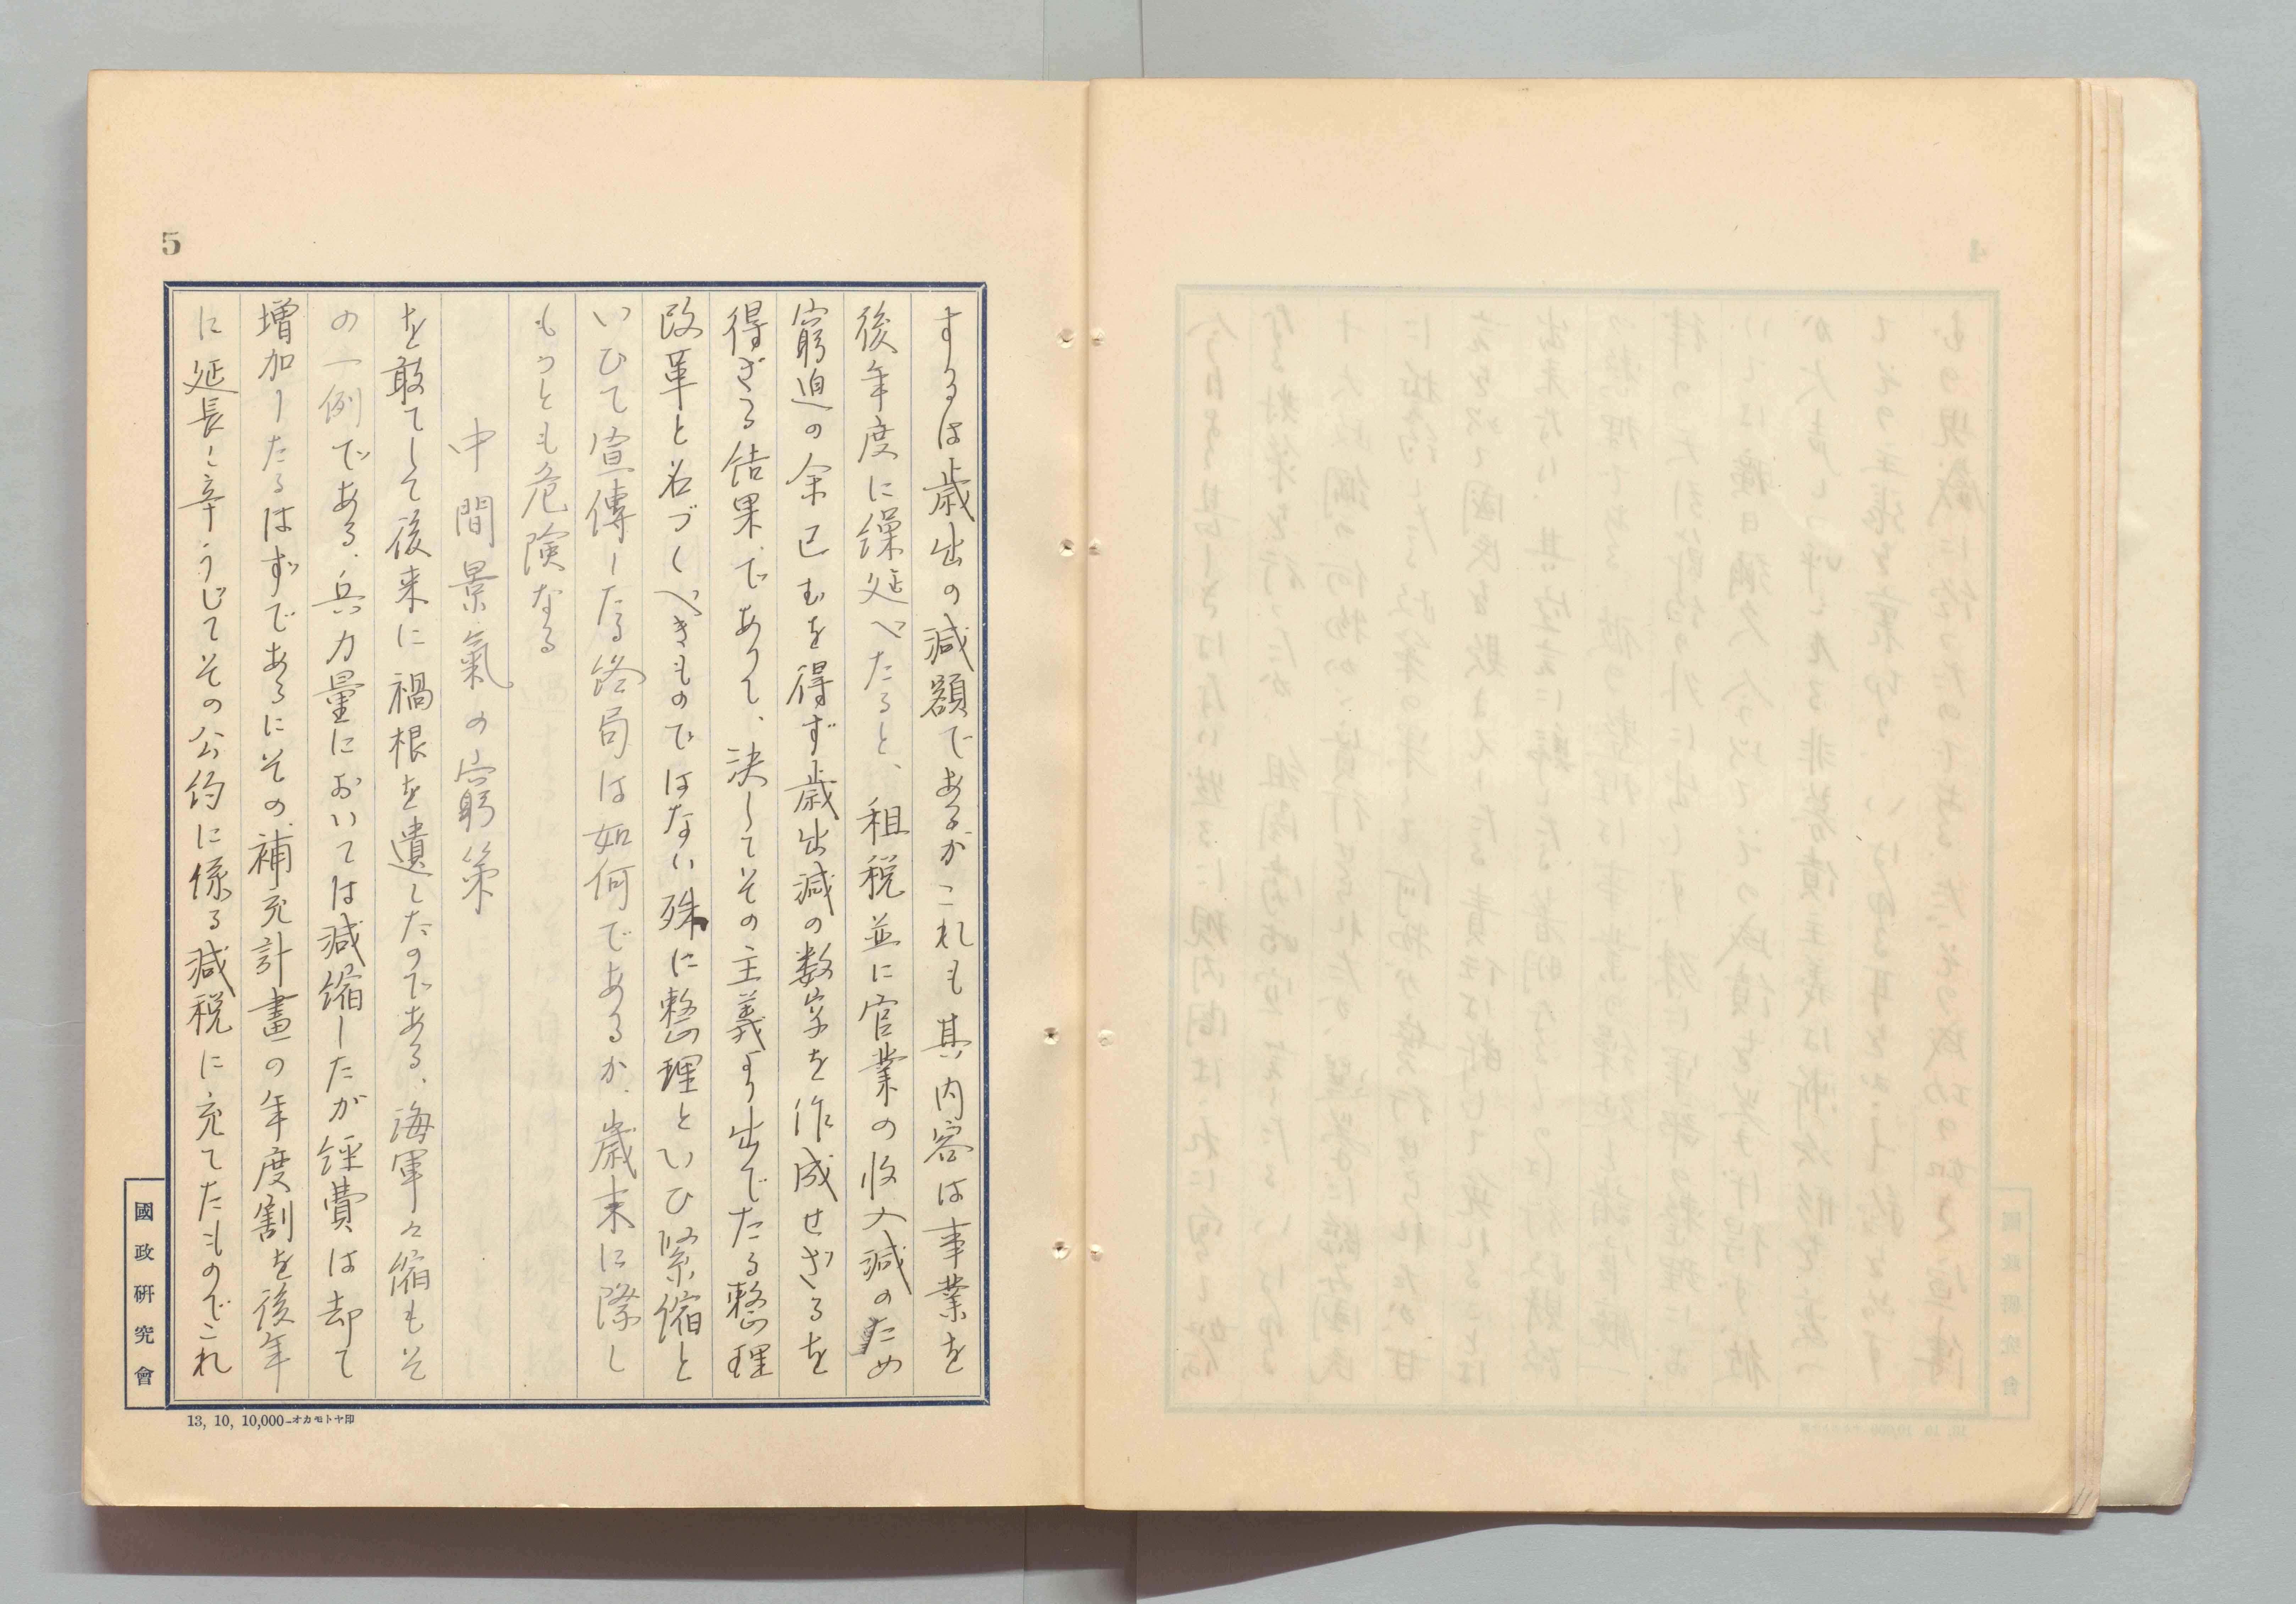 5
するは歳出の減額であるがこれも其内容は事業を
後年度に繰延べたると、租税並に官業の收入減のため
窮迫の余已むを得ず歳出減の数字を作成せざるを
得ざる結果であつて、決してその主義より出でたる整理
改革と名づくべきものではない殊に整理といひ緊縮と
いひて宣傳したる終局は如何であるか、歳末に際し
もつとも危険なる
中間景氣の窮策
を敢てして後来に禍根を遺したのである、海軍々縮もそ
の一例である、兵力量においては減縮したが経費は却て
増加したるはずであるにその補充計畫の年度割を後年
に延長し辛うじてその公約に係る減税に充てたものでこれ
國政研究會
13, 10, 10,000—オカモトヤ印